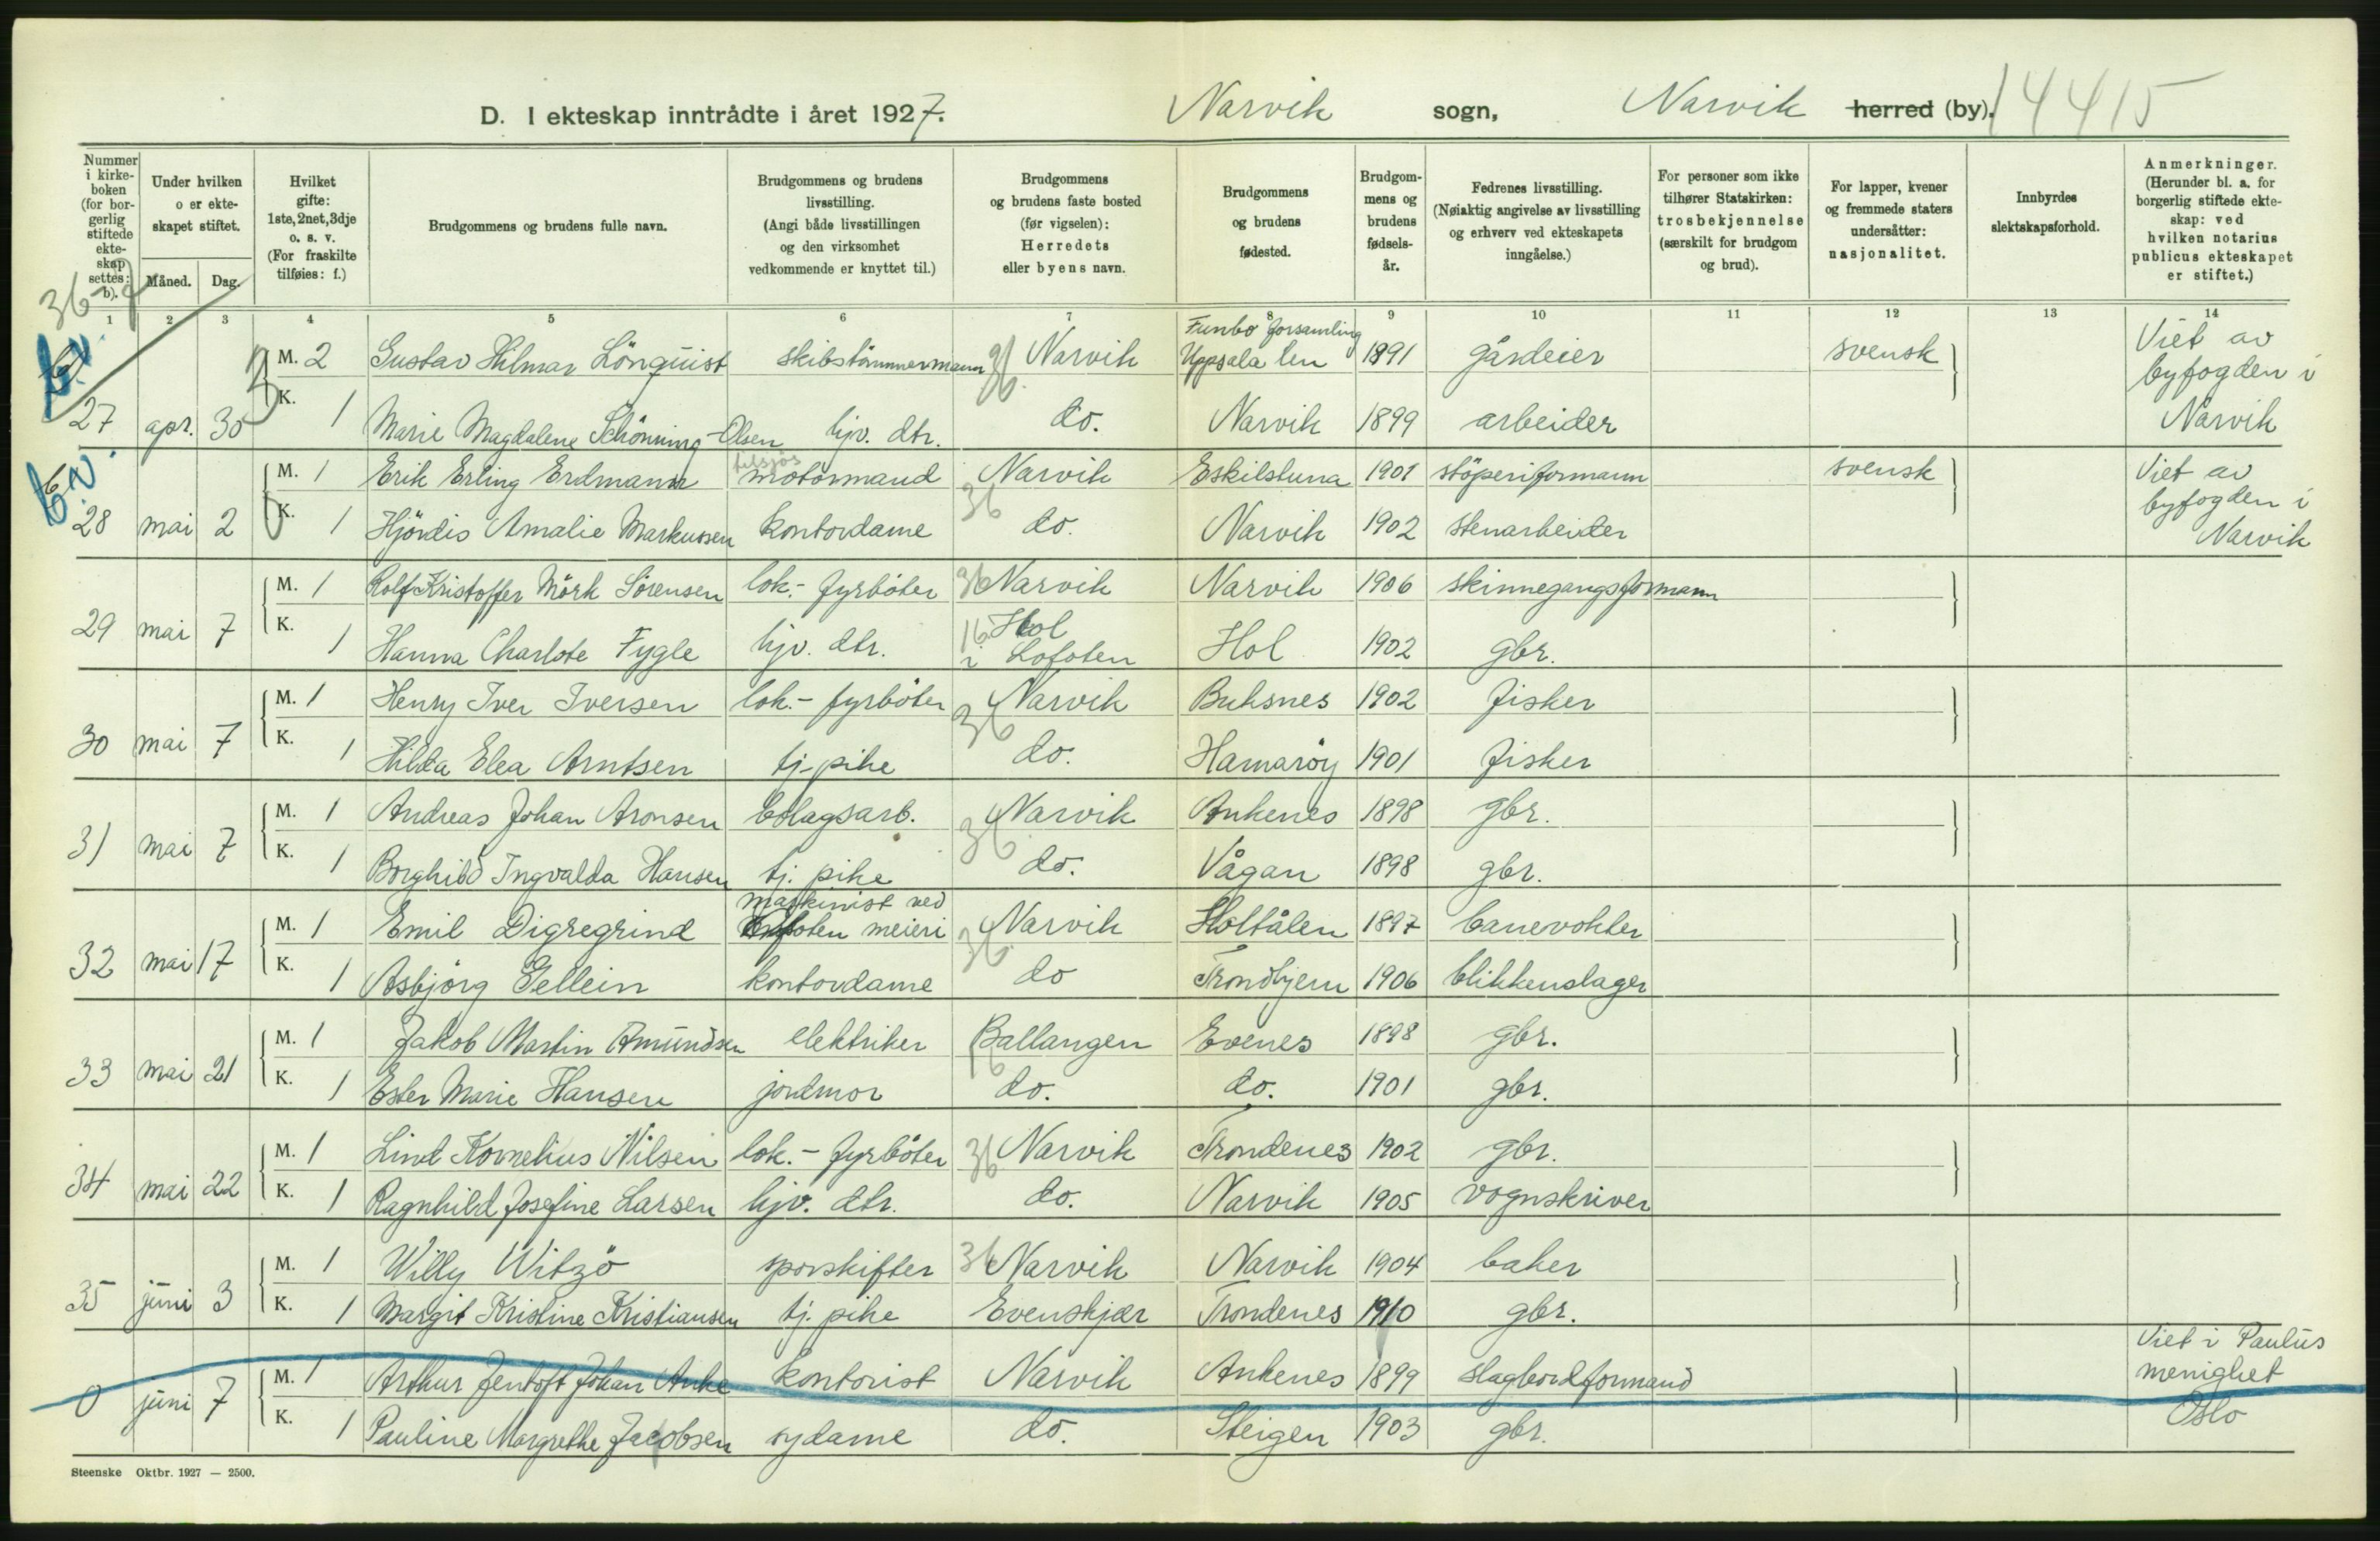 D. I ekteskap inntrådte i året 1927. Narvik sogn, Narvik herred (by). 14415
Nummer i kirkeboken (for borgerlig stiftede ekteskap settes: b).
Under hvilken o er ekteskapet stiftet.
Måned. Dag.
Hvilket gifte: 1ste, 2net, 3dje o. s. v. (For fraskilte tilføies: f.)
Brudgommens og brudens fulle navn.
Brudgommens og brudens livsstilling. (Angi både livsstillingen og den virksomhet vedkommende er knyttet til.)
Brudgommens og brudens faste bosted (før vigselen): Herredets eller byens navn.
Brudgommens og brudens fødested.
Brudgommens og brudens fødselsår.
Fedrenes livsstilling. (Nøiaktig angivelse av livsstilling og erhverv ved ekteskapets inngåelse.)
For personer som ikke tilhører Statskirken: trosbekjennelse (særskilt for brudgom og brud).
For lapper, kvener og fremmede staters undersåtter: nasjonalitet.
Innbyrdes slektskapsforhold.
Anmerkninger. (Herunder bl. a. for borgerlig stiftede ekteskap: ved hvilken notarius publicus ekteskapet er stiftet.)
1 2 3 4 5 6 7 8 9 10 11 12 13 14
36
b.v. M. 2 Gustav Hilmar Lönquist skibstömmermann 36 Narvik Funbo forsamling Uppsala len 1891 gårdeier svensk Viet av byfogden i Narvik
27 apr. 30 K. 1 Marie Magdalene Schönning-Olsen hjv. dtr. do. Narvik 1899 arbeider
b.v. M. 1 Erik Erling Erdmann tilsjøs motormand Narvik 36 Eskilstuna 1901 stöperiformann svensk Viet av byfogden i Narvik
28 mai 2 K. 1 Hjördis Amalie Markussen kontordame do. Narvik 1902 stenarbeider
M. 1 Rolf Kristoffer Mörk Sörensen lok.- fyrböter 36 Narvik Narvik 1906 skinnegangsformann
29 mai 7 K. 1 Hanna Charlote Fygle hjv. dtr. 16 Hol i Lofoten Hol 1902 gbr.
M. 1 Henry Iver Iversen lok.- fyrböter 36 Narvik Buksnes 1902 fisker
30 mai 7 K. 1 Hilda Elea Arntsen tj-pike do. Hamaröy 1901 fisker
M. 1 Andreas Johan Aronsen bolagsarb. 36 Narvik Ankenes 1898 gbr.
31 mai 7 K. 1 Borghild Ingvalda Hansen tj. pike do. Vågan 1898 gbr.
M. 1 Emil Digregrind maskinist ved Ofoten meieri 36 Narvik Holtålen 1897 banevokter
32 mai 17 K. 1 Asbjörg Gellein kontordame do Trondhjem 1906 blikkenslager
M. 1 Jakob Martin Amundsen elektriker Ballangen 16 Evenes 1898 gbr.
33 mai 21 K. 1 Ester Marie Hansen jordmor do. do. 1901 gbr.
M. 1 Lind Kornelius Nilsen lok.- fyrböter 36 Narvik Trondenes 1902 gbr.
34 mai 22 K. 1 Ragnhild Josefine Larsen hjv. dtr. do. Narvik 1905 vognskriver
M. 1 Willy Witzö sporskifter 36 Narvik Narvik 1904 baker
35 juni 3 K. 1 Margit Kristine Kristiansen tj. pike Evenskjær Trondenes 1910 gbr.
M. 1 Arthur Jentoft Johan Anke kontorist Narvik Ankenes 1899 slagbordformand Viet i Paulus menighet Oslo
0 juni 7 K. 1 Pauline Margrethe Jacobsen sydame do. Steigen 1903 gbr.
Steenske Oktbr. 1927 — 2500.